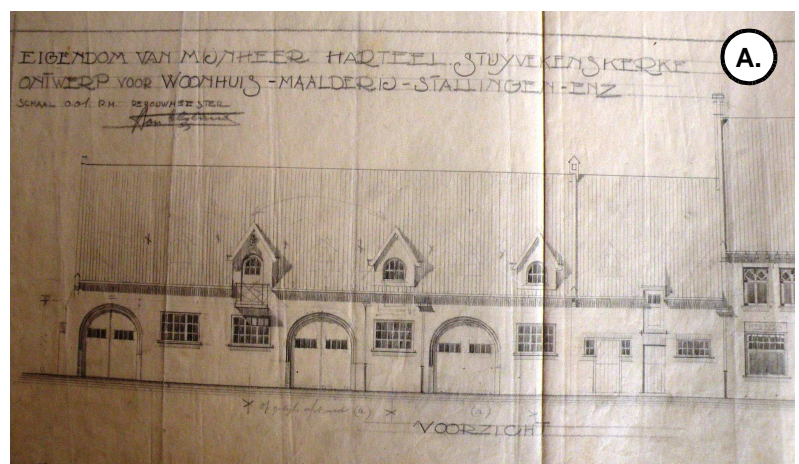 A.
EIGENDOM VAN MIJNHEER HARTEEL. STUYVEKENSKERKE
ONTWERP VOOR WOONHUIS - MAALDERIJ - STALLINGEN - ENZ
SCHAAL 0.01. P.M. DE BOUWMEESTER
(a)
(a)
VOORZICHT